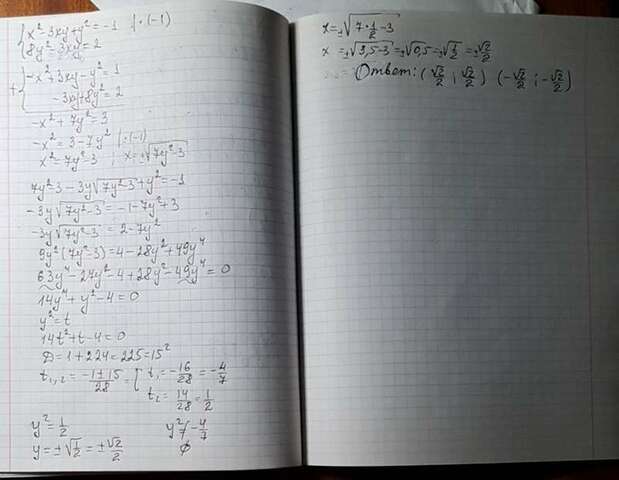 x² - 3xy + y² = -1 | · (-1)
8y² - 3xy = 2
+ { -x² + 3xy - y² = 1
- 3xy + 8y² = 2
-x² + 7y² = 3
-x² = 3 - 7y² | · (-1)
x² = 7y² - 3 ; x = ±√(7y² - 3)
7y² - 3 - 3y√(7y² - 3) + y² = -1
-3y√(7y² - 3) = -1 - 7y² + 3
-3y√(7y² - 3) = 2 - 7y²
9y² (7y² - 3) = 4 - 28y² + 49y⁴
63y⁴ - 27y² - 4 + 28y² - 49y⁴ = 0
14y⁴ + y² - 4 = 0
y² = t
14t² + t - 4 = 0
D = 1 + 224 = 225 = 15²
t₁,₂ = (-1 ± 15)/28 = [ t₁ = -16/28 = -4/7
t₂ = 14/28 = 1/2
y² = 1/2 y² ≠ -4/7
y = ±√(1/2) = ±√2/2 ∅
x = ±√(7 · 1/2 - 3)
x = ±√(3,5 - 3) = ±√0,5 = ±√(1/2) = ±√2/2
Ответ: (√2/2 ; √2/2) (-√2/2 ; -√2/2)